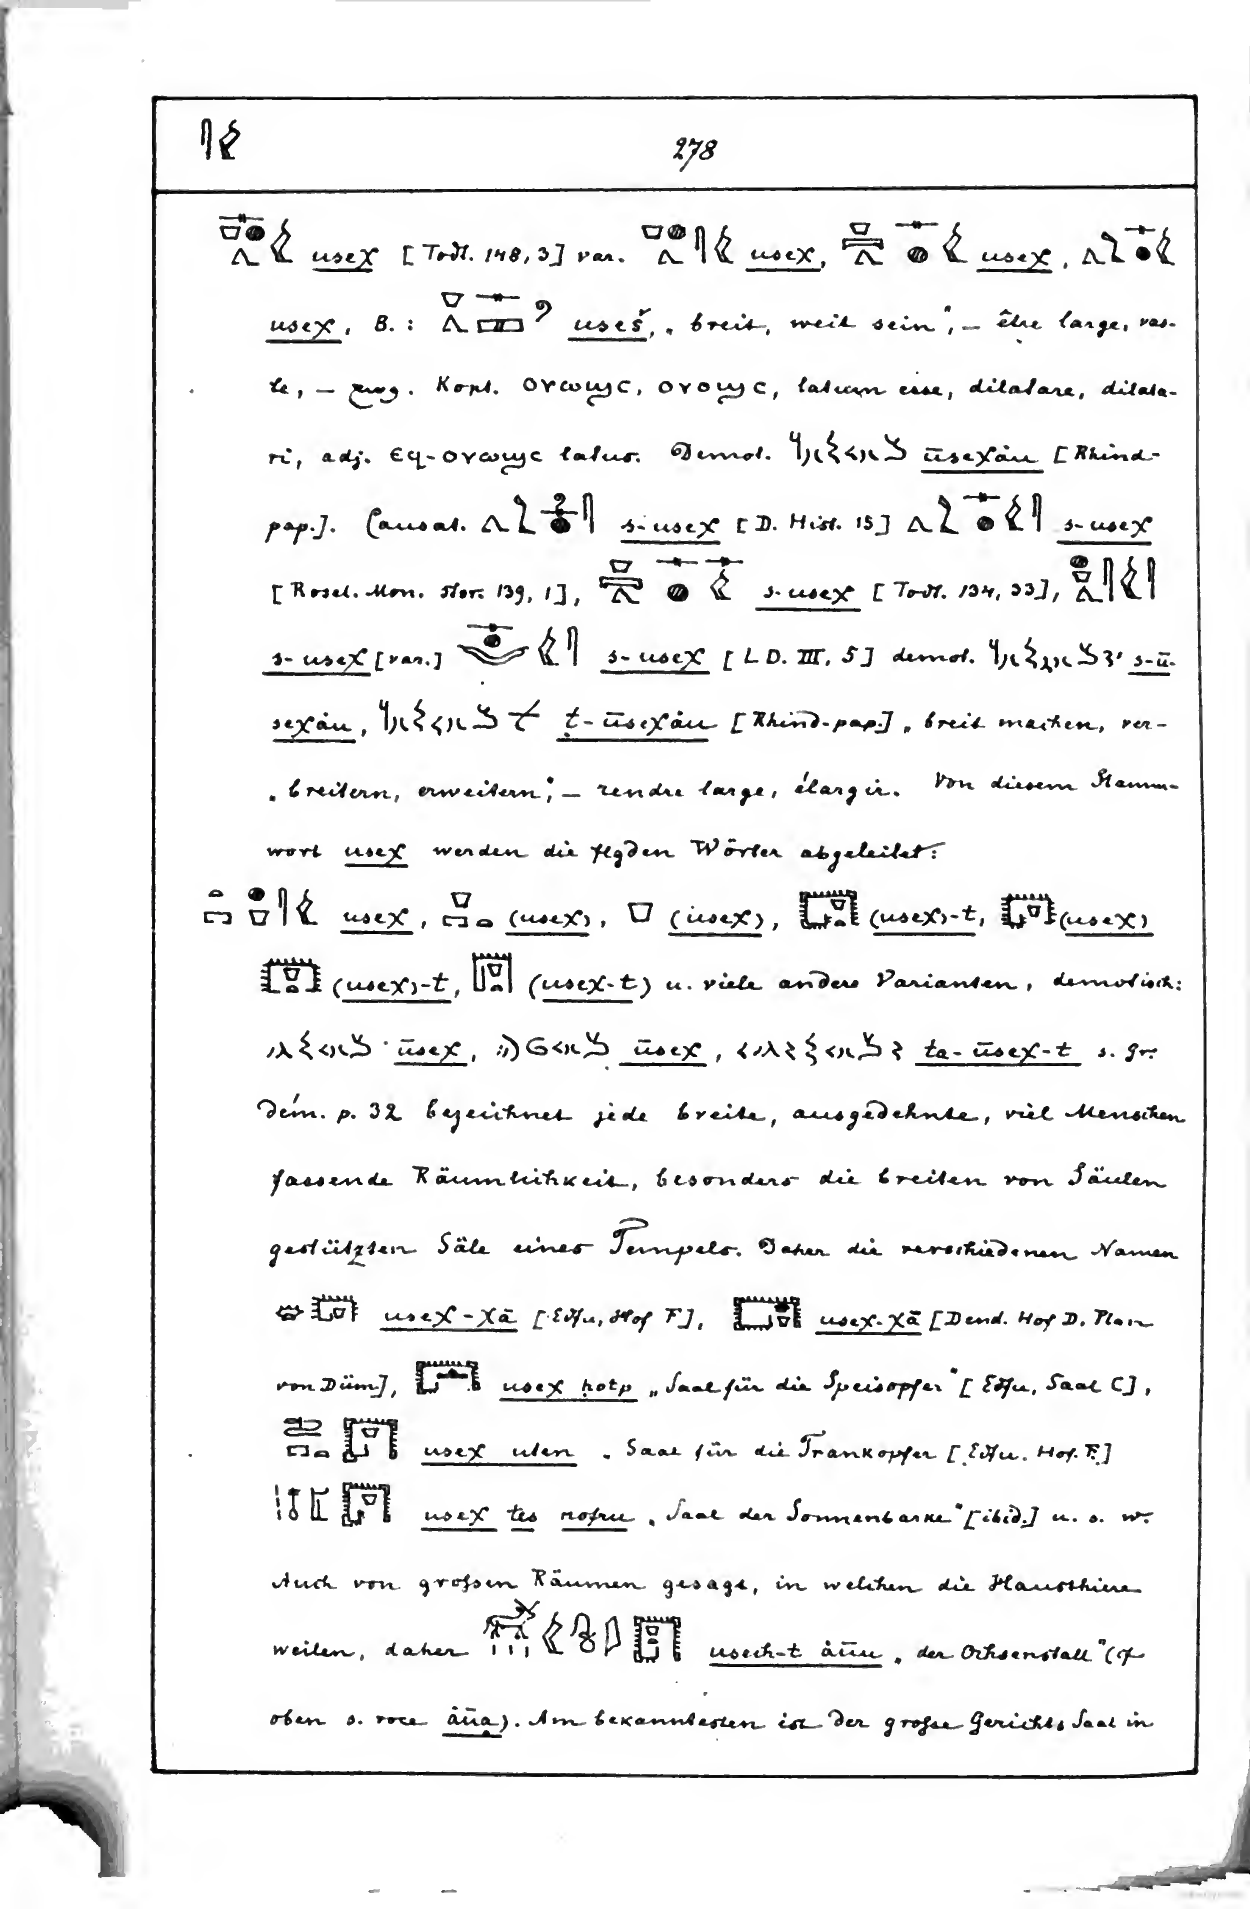 278
useχ [Todt. 148, 3] var. useχ, useχ, 
useχ, B.: useš, „breit, weit sein“, — être large, vas-
te, — Kopt. ⲟⲩⲱϣⲥ, ⲟⲩⲟϣⲥ, latum esse, dilatare, dilata-
ri, adj. ⲉϥ-ⲟⲩⲱϣⲥ latus. Demot. ūseχȧu [Rhind-
pap.]. Causat. s-useχ [D. Hist. 15] s-useχ
[Rosel. Mon. stor. 139, 1], s-useχ [Todt. 134, 33],
s-useχ [var.] s-useχ [LD. III, 5] demot. s-ū-
seχȧu, ṭ-ūseχȧu [Rhind-pap.] „breit machen, ver-
„breitern, erweitern“; — rendre large, élargir. Von diesem Stamm-
wort useχ werden die flgden Wörter abgeleitet:
useχ, (useχ), (useχ), (useχ)-t, (useχ)
(useχ)-t, (useχ-t) u. viele andere Varianten, demotisch:
ūseχ, ūseχ, ta-ūseχ-t s. gr.
dém. p. 32 bezeichnet jede breite, ausgedehnte, viel Menschen
fassende Räumlichkeit, besonders die breiten von Säulen
gestützten Säle eines Tempels. Daher die verschiedenen Namen
useχ-χā [Edfu, Hof F], useχ-χā [Dend. Hof D. Plan
von Düm], useχ ḥotp „Saal für die Speisopfer“ [Edfu, Saal C],
useχ uten „Saal für die Trankopfer [Edfu. Hof. F.]
useχ tes nofru „Saal der Sonnenbarke“ [ibid.] u. s. w.
Auch von großen Räumen gesagt, in welchen die Hausthiere
weilen, daher usech-t ȧūu „der Ochsenstall“ (cf
oben s. voce ȧūa). Am bekanntesten ist der große Gerichts Saal in